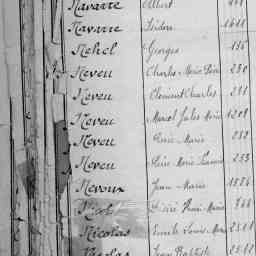 Navarre Albert
Navarre Isidore 1611
Nehel Georges
Neveu Charles Marie Pierre 230
Neveu Clément Charles 231
Neveu Marcel Jules Marie 1209
Neveu Marie 232
Neveu Marie 233
Nevoux Jean Marie 1876
Nicol Désiré Henri Marie 768
Nicolas Emile Louis Marie 2511
Nicolas Jean Baptiste 2512